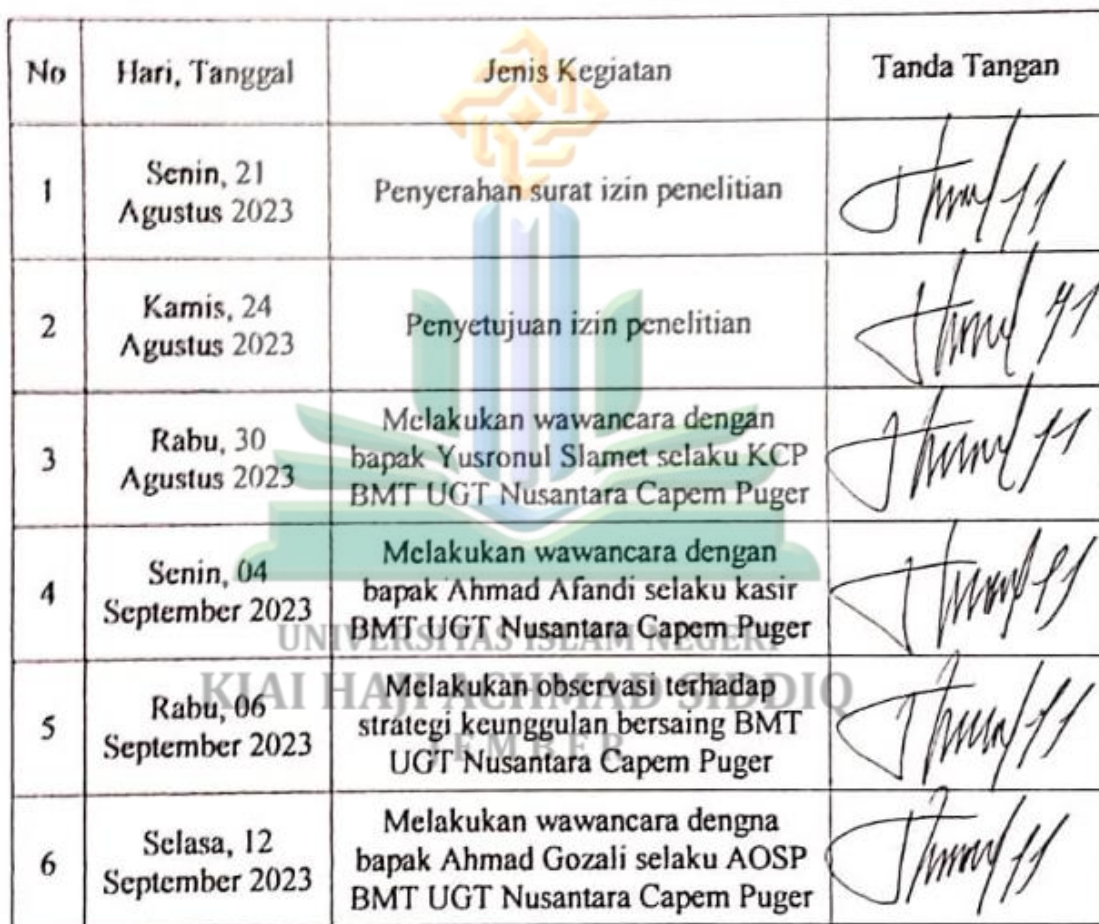 No Hari, Tanggal Jenis Kegiatan Tanda Tangan
1 Senin, 21 Agustus 2023 Penyerahan surat izin penelitian
2 Kamis, 24 Agustus 2023 Penyetujuan izin penelitian
3 Rabu, 30 Agustus 2023 Melakukan wawancara dengan
bapak Yusronul Slamet selaku KCP
BMT UGT Nusantara Capem Puger
4 Senin, 04 September 2023 Melakukan wawancara dengan
bapak Ahmad Afandi selaku kasir
BMT UGT Nusantara Capem Puger
5 Rabu, 06 September 2023 Melakukan observasi terhadap
strategi keunggulan bersaing BMT
UGT Nusantara Capem Puger
6 Selasa, 12 September 2023 Melakukan wawancara dengna
bapak Ahmad Gozali selaku AOSP
BMT UGT Nusantara Capem Puger
UNIVERSITAS ISLAM NEGERI
KIAI HAJI ACHMAD SIDDIQ
JEMBER